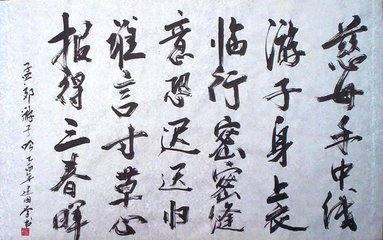 慈母手中线
游子身上衣
临行密密缝
意恐迟迟归
谁言寸草心
报得三春晖
孟郊游子吟 乙酉年建国书